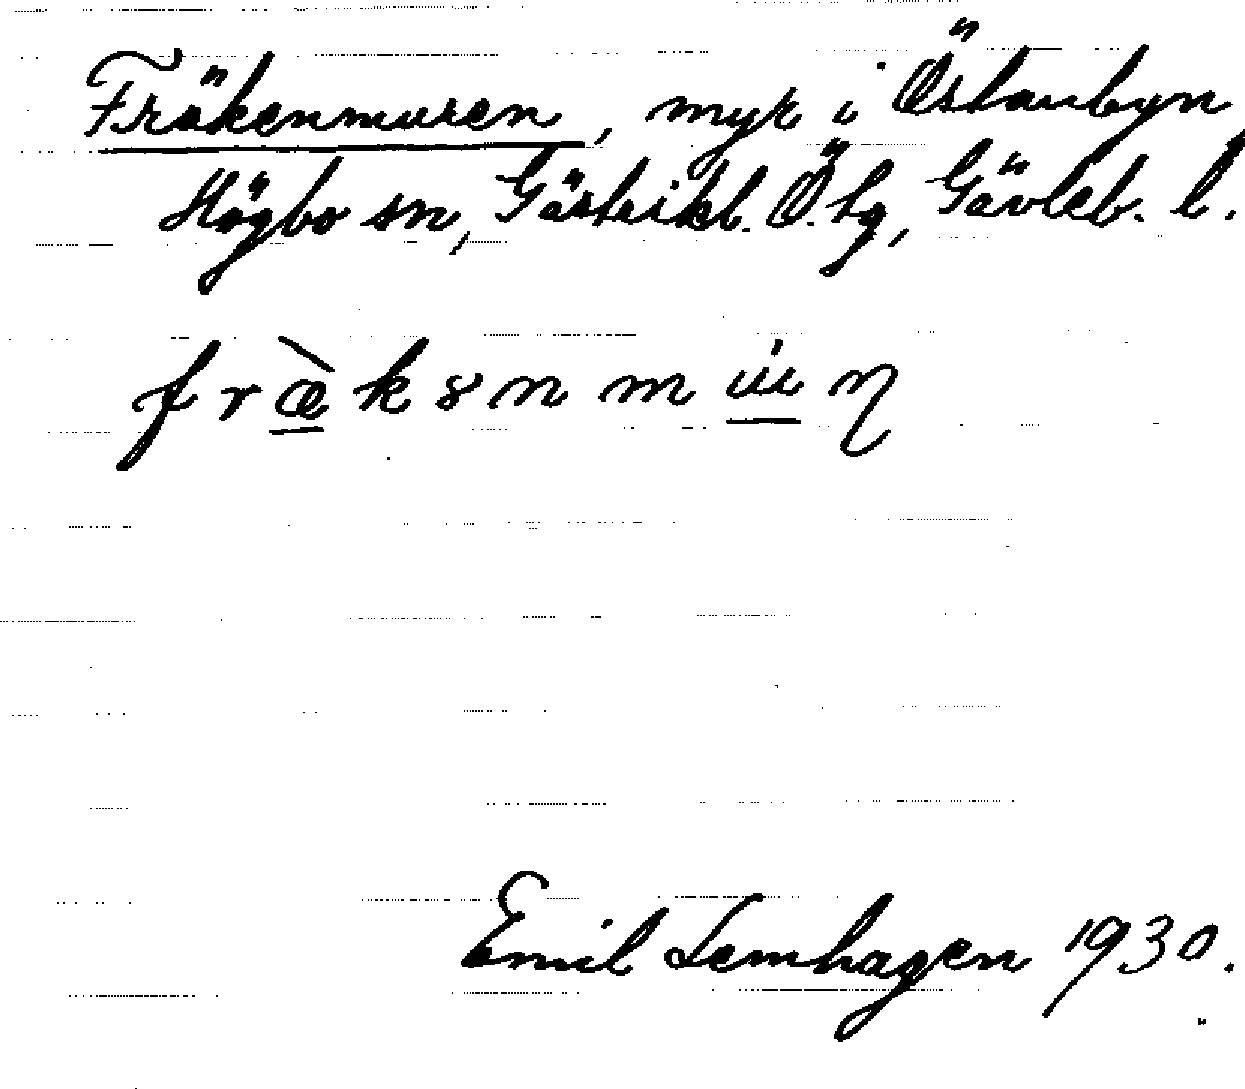 Fräkenmuren, myr i Östanbyn,
Högbo sn, Gästrikl. Ö. tg, Gävleb. l.
fræ̀ksnmuṅ
Emil Lemhagen 1930.